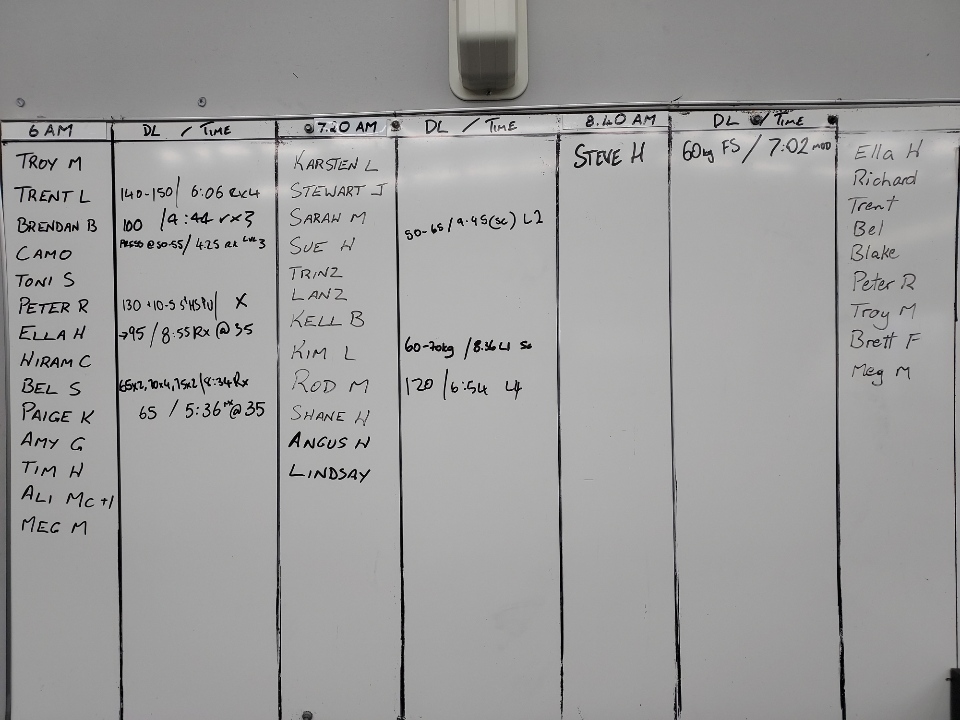 6 AM DL / TIME 7.20 AM DL / TIME 8.40 AM DL / TIME
TROY M
TRENT L 140-150 / 6:06 Rx4
BRENDAN B 100 / 4:44 rx3
CAMO @ 50-55 / 4.25 RX LVL 3
TONI S
PETER R 130 X
ELLA H →95 / 8:55 Rx @ 35
HIRAM C
BEL S 65x2, 70x4, 75x2 / 8:34 Rx
PAIGE K 65 / 5:36 RX @ 35
AMY G
TIM H
ALI MC +1
MEG M
KARSTEN L
STEWART J
SARAH M 50-65 / 9.45 (sc) L2
SUE H
TRINZ
LANZ
KELL B
KIM L 60-70kg / 8:36 L1 Sc
ROD M 120 / 6:54 L4
SHANE H
ANGUS H
LINDSAY
STEVE H 60kg FS / 7:02 MOD
Ella H
Richard
Trent
Bel
Blake
Peter R
Troy M
Brett F
Meg M